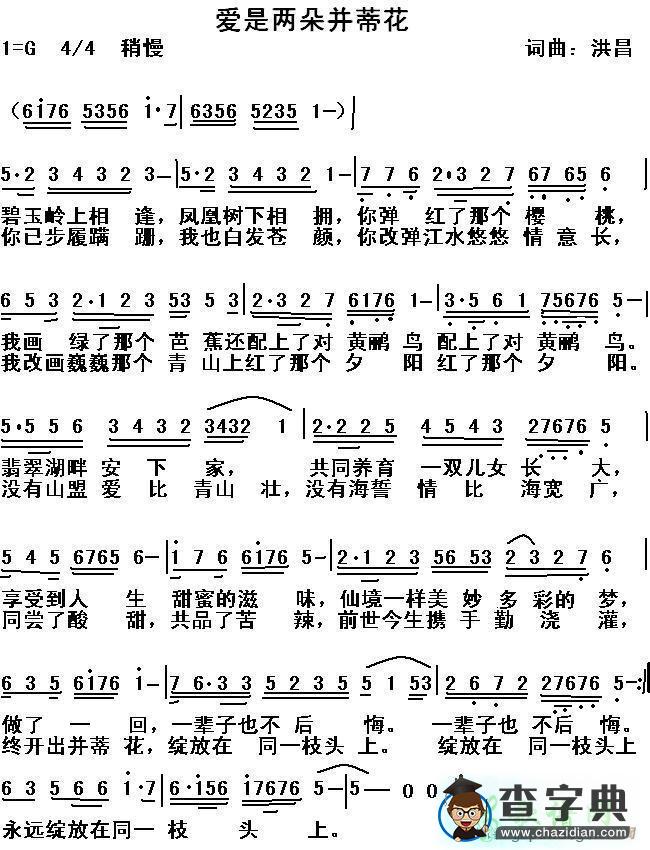 爱是两朵并蒂花
1=G 4/4 稍慢 词曲：洪昌
（6i76 5356 i·7|6356 5235 1-）|
5·2 3432 3-|5·2 3432 1-|7 7 6 2·3 2 7 67 65 6
碧玉岭上相 逢，凤凰树下相 拥，你弹 红了那个 樱 桃，
你已步履蹒 跚，我也白发苍 颜，你改弹江水悠悠 情 意 长，
6 5 3 2·1 2 3 53 5 3|2·3 2 7 6176 1-|3·5 6 1 75676 5-|
我画 绿了那个 芭 蕉还配上了对 黄鹂 鸟 配上了对 黄鹂 鸟。
我改画巍巍那个 青 山上红了那个 夕 阳红了那个 夕 阳。
5·5 5 6 3 4 3 2 3432 1|2·2 2 5 4 5 4 3 27676 5
翡翠湖畔 安 下 家， 共同养育 一双儿女 长 大，
没有山盟 爱 比 青山 壮，没有海誓 情 比 海宽 广，
5 4 5 6765 6-|i 7 6 6i76 5-|2·1 2 3 56 53 2 3 2 7 6
享受到人 生 甜蜜的滋 味，仙境一样美 妙 多 彩的 梦，
同尝了酸 甜，共品了苦 辣，前世今生携 手 勤 浇 灌，
6 3 5 6i76 1-|7 6·3 5 5 5 1 53|2 6 7 2 27676 5-:||
做了 一 回，一辈子也 不 后 悔。 一辈子也 不后 悔。
终开出并蒂 花，绽放在 同一枝头 上。 绽放在 同一枝头 上
6 3 5 66 6 i·|6·i56 i7676 5-|5- 0 0
永远绽放在同一 枝 头 上。
查字典
www.chazidian.com